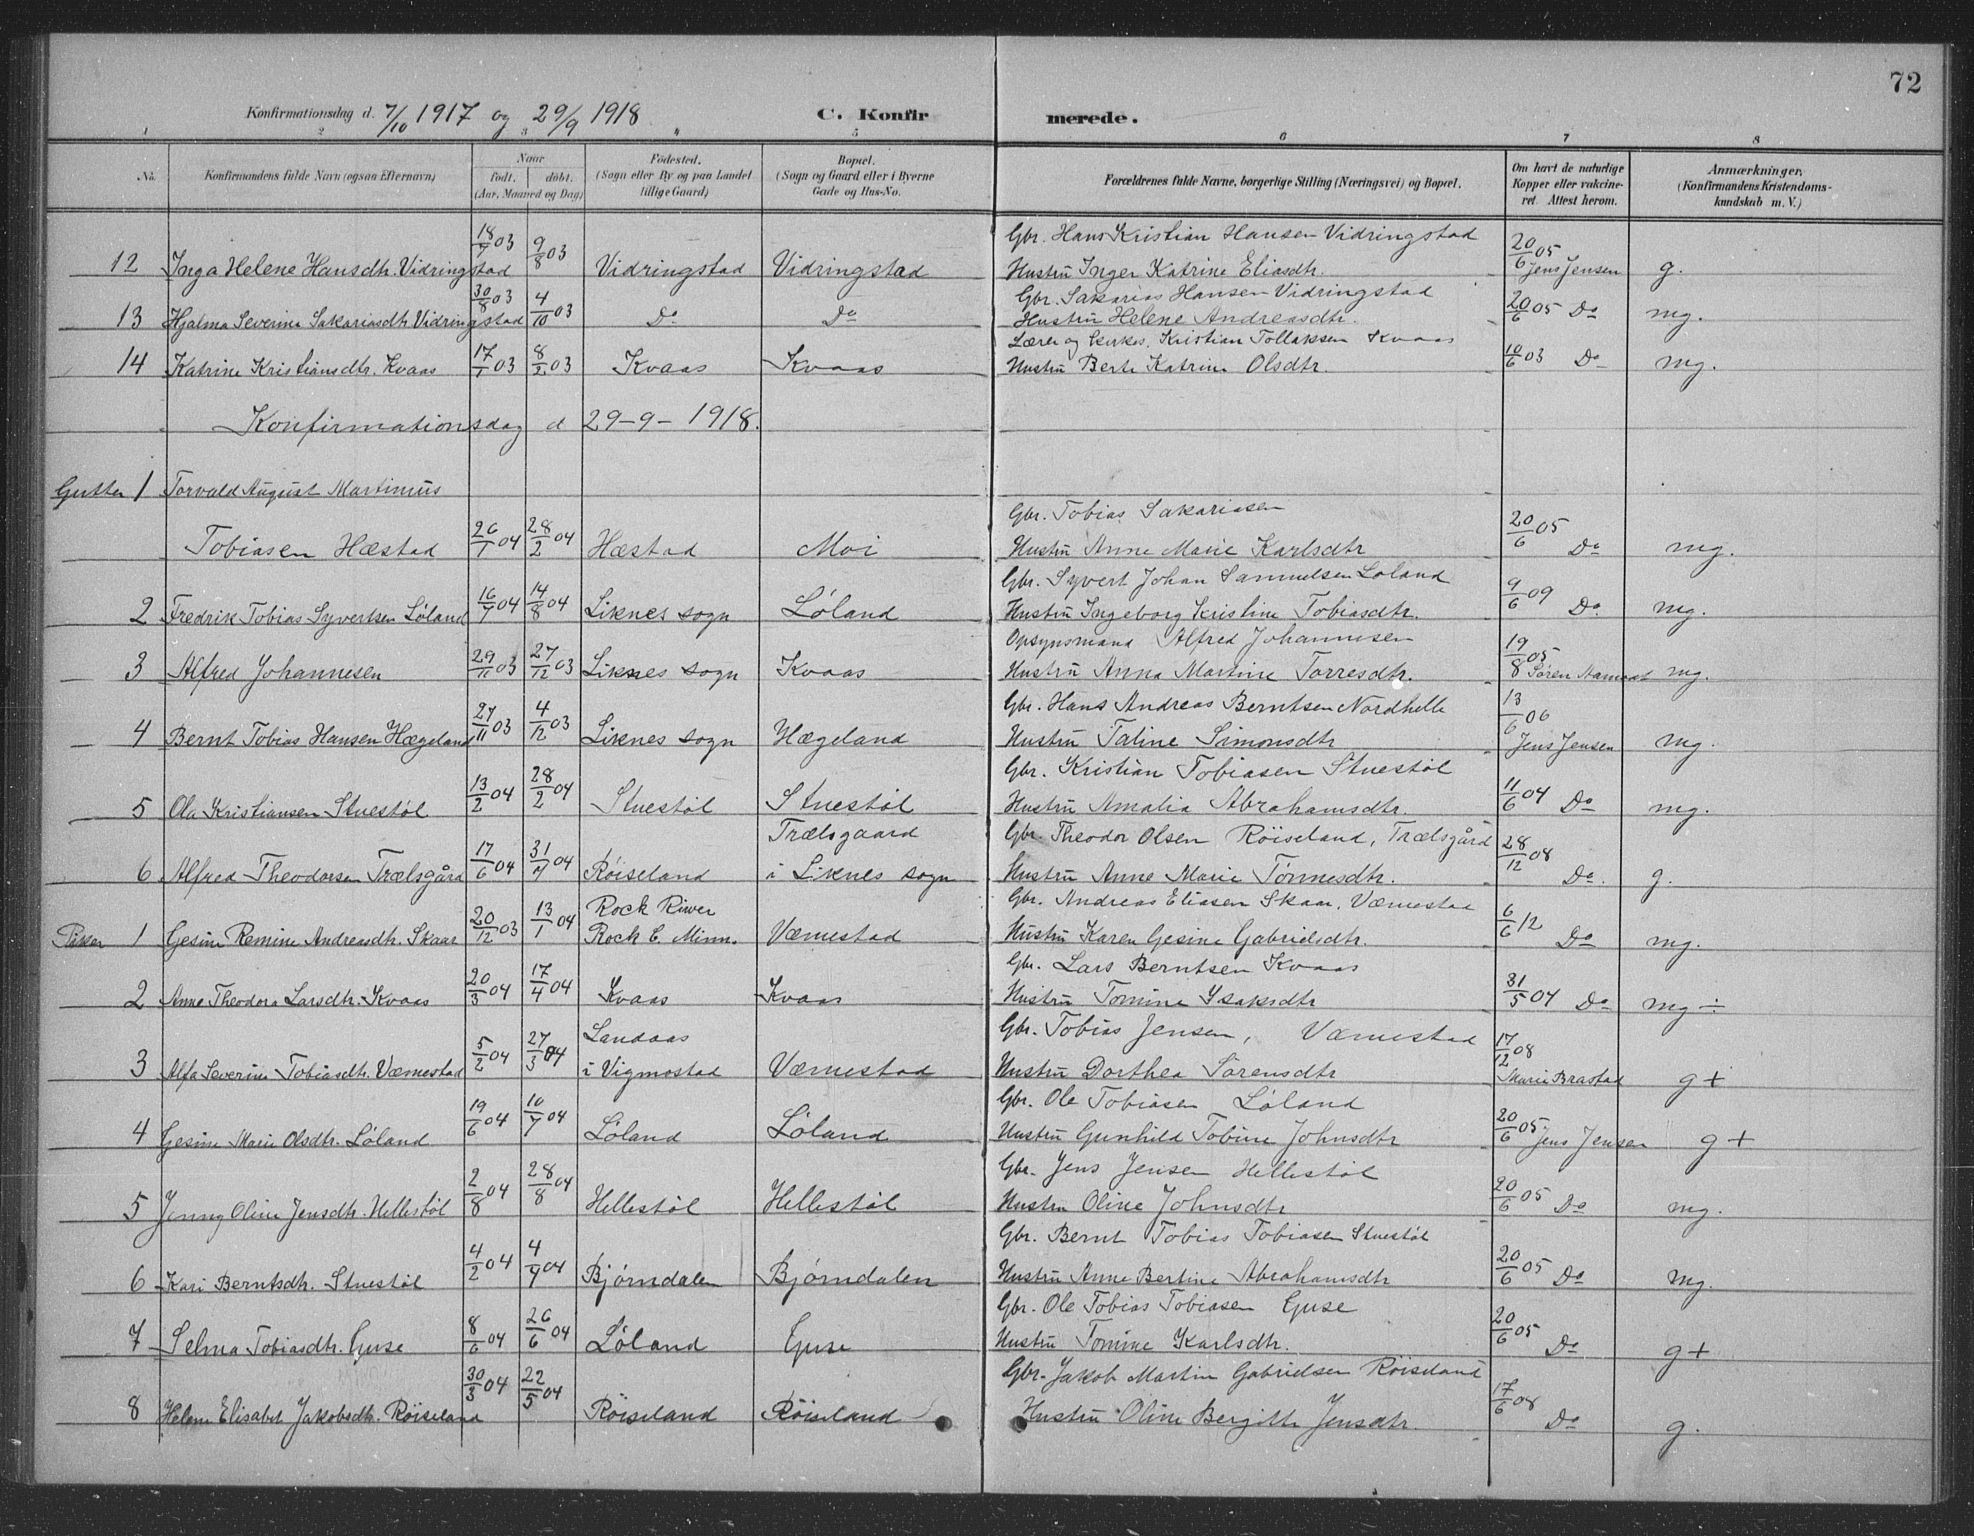 72
Konfirmationsdag d. 7/10 1917 og 29/9 1918 C. Konfirmerede.
1 2 3 4 5 6 7 8
No. Konfirmandens fulde Navn (ogsaa Efternavn) Naar født. døbt. (Aar, Maaned og Dag) Fødested. (Sogn eller By og paa Landet tillige Gaard) Bopæl. (Sogn og Gaard eller i Byerne Gade og Hus-No. Forældrenes fulde Navne, borgerlige Stilling (Næringsvei) og Bopæl. Om havt de naturlige Kopper eller vakcineret. Attest herom. Anmærkninger, (Konfirmandens Kristendomskundskab m. V.)
Gbr. Hans Kristian Hansen Vidringstad
12 Inga Helene Hansdtr. Vidringstad 18/7 03 9/8 03 Vidringstad Vidringstad Hustru Inger Katrine Eliasdtr. 20/6 05 Jens Jensen g.
Gbr. Sakarias Hansen Vidringstad
13 Hjalma Severine Sakariasdtr. Vidringstad 30/8 03 4/10 03 Do Do Hustru Helene Andreasdtr. 20/6 05 Do mg.
Lærer og Kirkes. Kristian Tollaksen Kvaas
14 Katrine Kristiansdtr. Kvaas 17/1 03 8/2 03 Kvaas Kvaas Hustru Berte Katrine Olsdtr. 10/6 03 Do mg.
Konfirmationsdag d 29-9-1918.
Gutter 1 Torvald August Martinius
Gbr. Tobias Sakariasen
Tobiasen Hæstad 26/1 04 28/2 04 Hæstad Moi Hustru Anne Marie Karlsdtr 20/6 05 Do mg.
Gbr. Syvert Johan Samuelsen Løland
2 Fredrik Tobias Syvertsen Løland 16/7 04 14/8 04 Liknes sogn Løland Hustru Ingeborg Kristine Tobiasdtr. 9/6 09 Do mg.
Opsynsmand Alfred Johannesen
3 Alfred Johannesen 29/11 03 27/12 03 Liknes sogn Kvaas Hustru Anna Martine Torresdtr. 19/8 05 Søren Aamodt mg.
Gbr. Hans Andreas Berntsen Nordhelle
4 Bernt Tobias Hansen Hægeland 27/11 03 4/12 03 Liknes sogn Hægeland Hustru Taline Simonsdtr 13/6 06 Jens Jensen mg.
Gbr. Kristian Tobiasen Stuestøl
5 Ola Kristiansen Stuestøl 13/2 04 28/2 04 Stuestøl Stuestøl Hustru Amalia Abrahamsdtr. 11/6 04 Do mg.
Trælsgaard Gbr. Theodor Olsen Røiseland, Trælsgård
6 Alfred Theodorsen Trælsgård 17/6 04 31/7 04 Røiseland i Liknes sogn Hustru Anne Marie Tønnesdtr. 28/12 08 Do. g.
Rock River Gbr. Andreas Eliasen Skaar, Værnestad
Piker 1 Gesine Remine Andreasdtr. Skaar 20/12 03 13/1 04 Rock C. Minn. Værnestad Hustru Karen Gesine Gabrielsdtr. 6/6 12 Do mg.
Gbr. Lars Berntsen Kvaas
2 Anne Theodora Larsdtr. Kvaas 20/3 04 17/4 04 Kvaas Kvaas Hustru Tomine Isaksdtr 31/5 04 Do mg ÷
Landaas Gbr. Tobias Jensen, Værnestad
3 Alfa Severine Tobiasdtr. Værnestad 5/2 04 27/3 04 i Vigmostad Værnestad Hustru Dorthea Sørensdtr 17/12 08 Marie Brastad g +
Gbr. Ole Tobiasen Løland
4 Gesine Marie Olsdtr. Løland 19/6 04 10/7 04 Løland Løland Hustru Gunhild Tobine Johnsdtr 20/6 05 Jens Jensen g +
Gbr. Jens Jensen Hellestøl
5 Jenny Oline Jensdtr. Hellestøl 2/8 04 28/8 04 Hellestøl Hellestøl Hustru Oline Johnsdtr 20/6 05 Do mg.
Gbr. Bernt Tobias Tobiasen Stuestøl
6 Kari Berntsdtr. Stuestøl 4/2 04 4/4 04 Bjørndalen Bjørndalen Hustru Anne Bertine Abrahamsdtr 20/6 05 Do mg.
Gbr. Ole Tobias Tobiasen Guse
7 Selma Tobiasdtr. Guse 8/6 04 26/6 04 Løland Guse Hustru Tomine Karlsdtr. 20/6 05 Do g +
Gbr. Jakob Martin Gabrielsen Røiseland
8 Helene Elisabet Jakobsdtr. Røiseland 30/3 04 22/5 04 Røiseland Røiseland Hustru Oline Bergitte Jensdtr. 17/6 08 Do g.